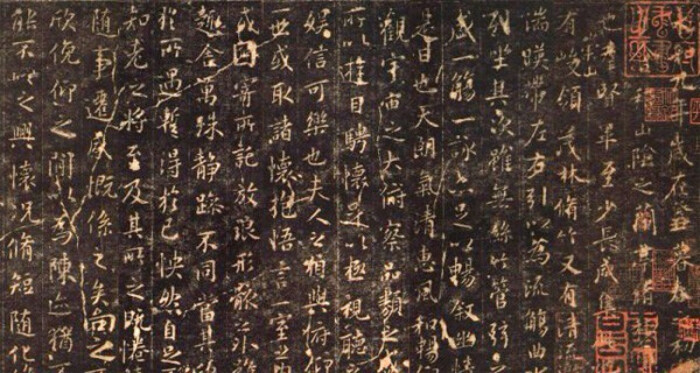 永和九年歲在癸丑暮春之初
稽山陰之蘭亭脩禊
也群賢畢至少長咸集
有崇山峻領茂林脩竹又有清流
湍暎帶左右引以為流觴曲水
列坐其次雖無絲竹管弦之
盛一觴一詠亦足以暢敘幽情
是日也天朗氣清惠風和暢
觀宇宙之大俯察品類之盛
所以遊目騁懷足以極視聽之
娛信可樂也夫人之相與俯仰
一世或取諸懷抱悟言一室之內
或因寄所託放浪形骸之外雖
趣舍萬殊靜躁不同當其欣
於所遇蹔得於己怏然自足
知老之將至及其所之既惓
隨事遷感慨係之矣向之所
欣俛仰之閒以為陳迹猶不
能不以之興懷況脩短隨化